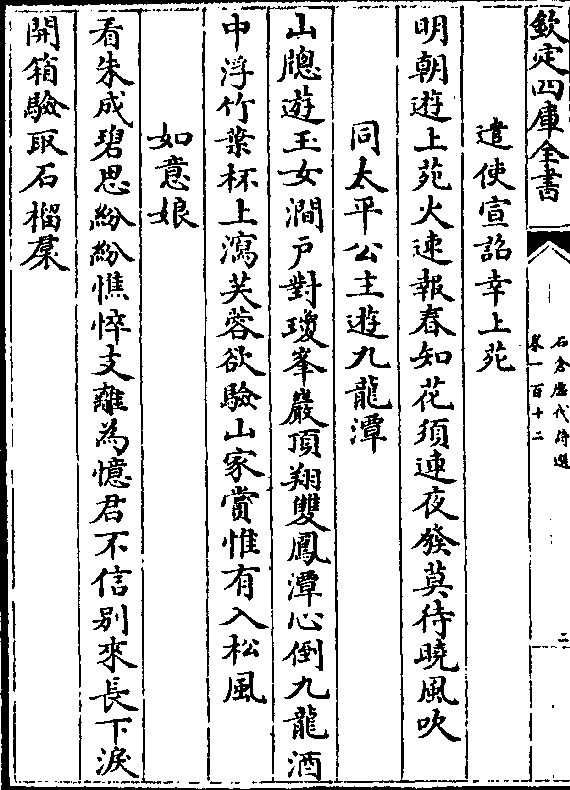 欽定四庫全書
石倉歷代詩選
卷一百十二
二
遣使宣詔幸上苑
明朝遊上苑火速報春知花須連夜發莫待曉風吹
同太平公主遊九龍潭
山牎遊玉女澗戸對瓊峯巖頂翔雙鳳潭心倒九龍酒
中浮竹葉杯上瀉芙蓉欲驗山家賞惟有入松風
如意娘
看朱成碧思紛紛憔悴支離為憶君不信别來長下淚
開箱驗取石榴裙